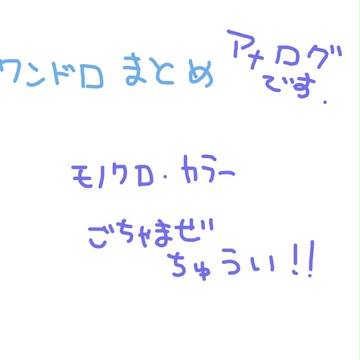 ワンドロ まとめ
アナログ
です.
モノクロ・カラー
ごちゃまぜ
ちゅうい!!